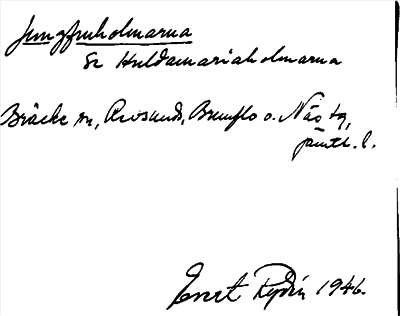 Jungfruholmarna
Se Huldamariaholmarna
Bräcke sn, Revsunds, Brunflo o. Näs tg,
jämtl. l.
Ernst Rydén 1946.